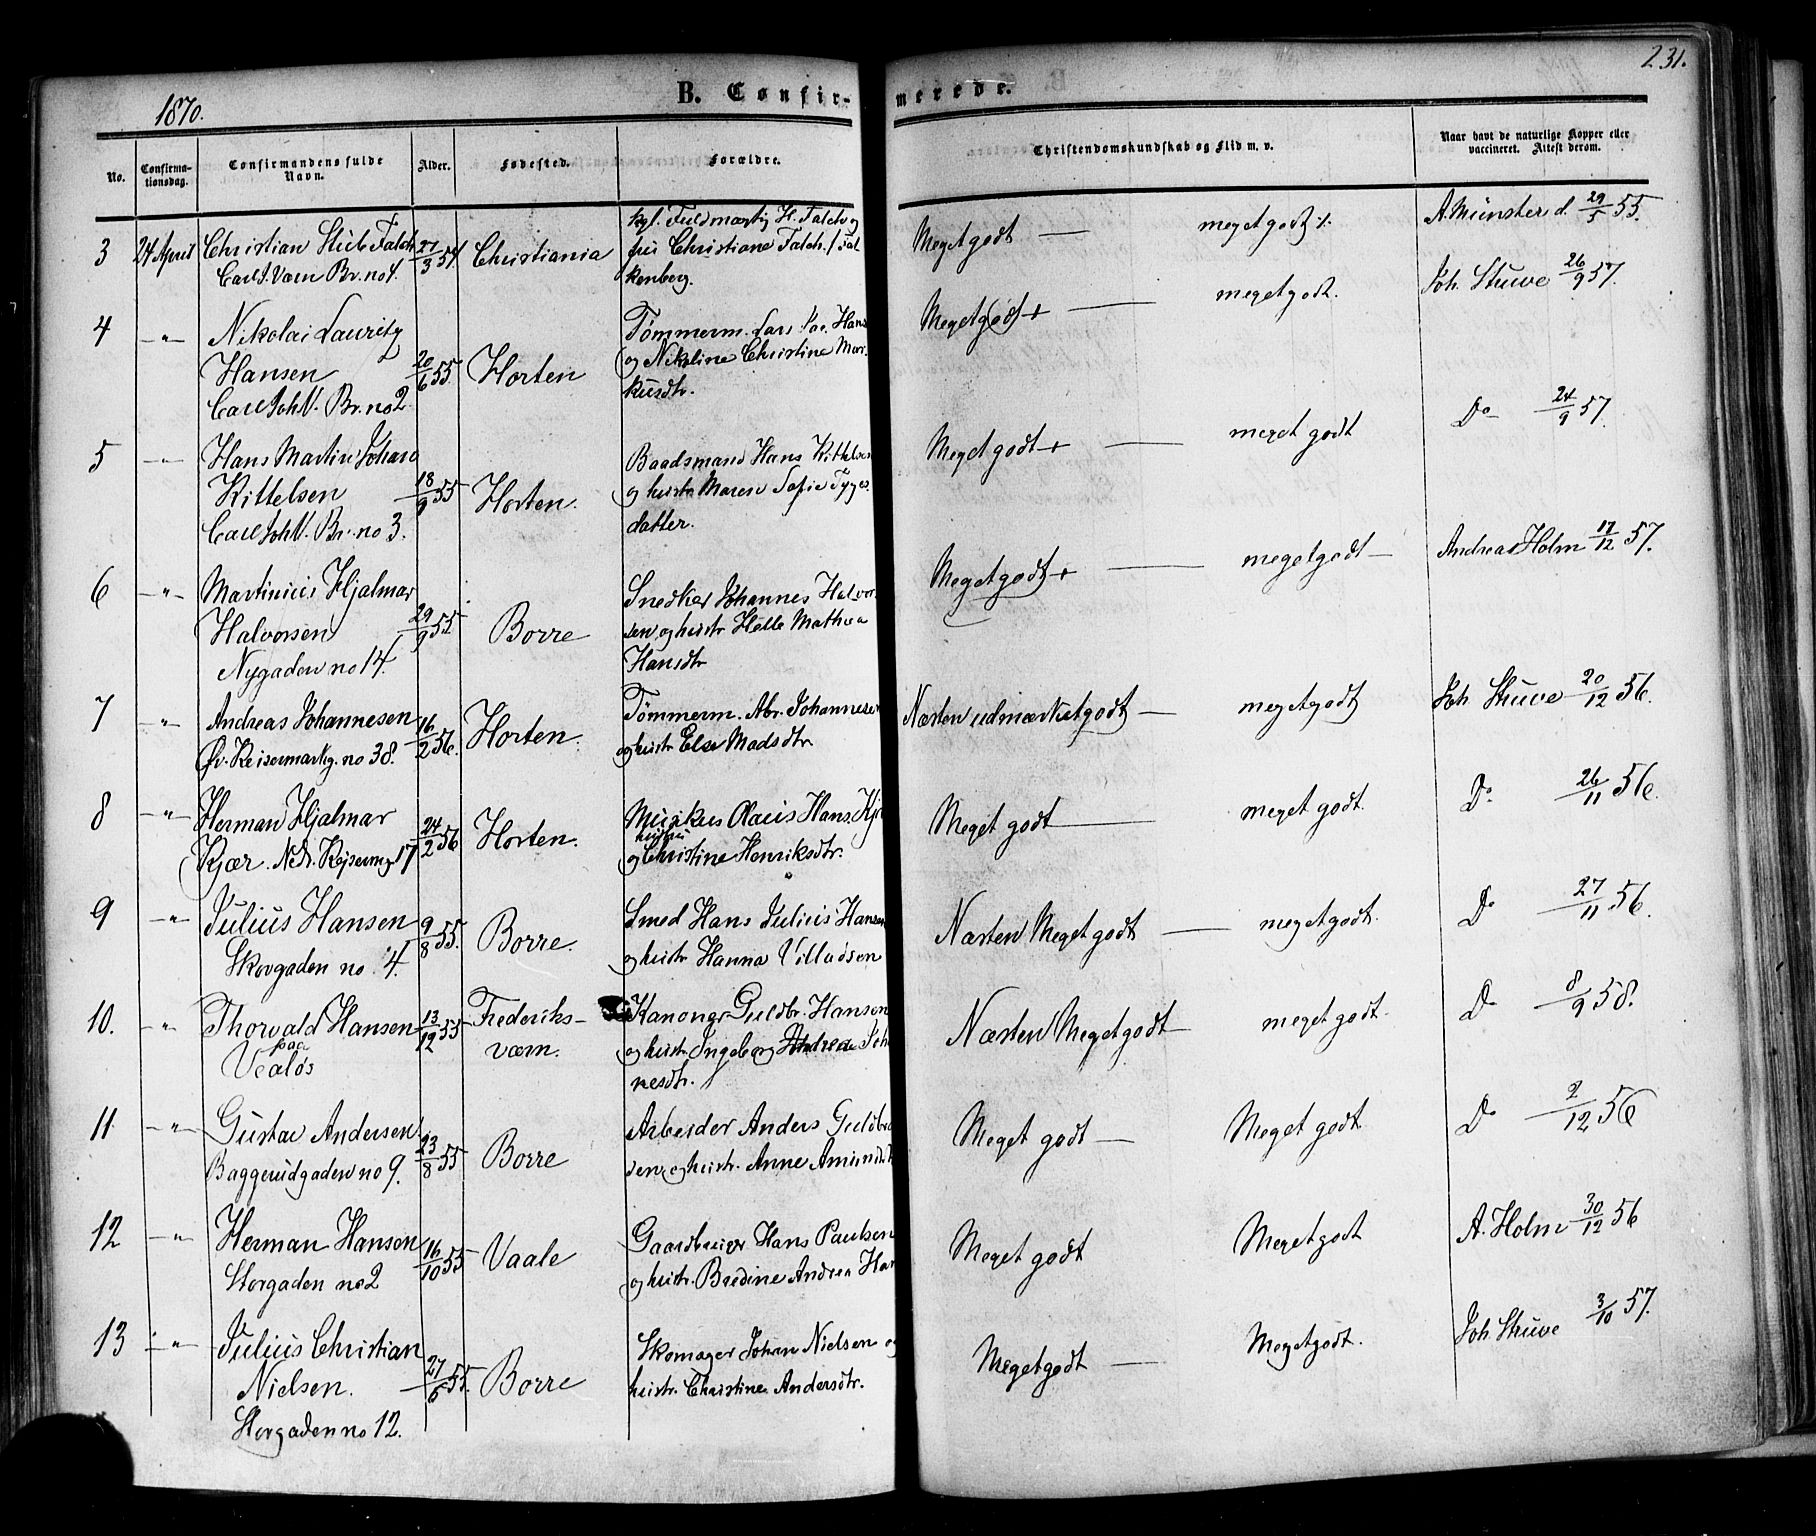 231.
1870.
B. Confir-
merede.
No.
Confirma-
tionsdag.
Confirmandens fulde
Navn.
Alder.
Fødested.
Forældre.
Christendomskundskab og Flid m. v.
Naar havt de naturlige Kopper eller
vaccineret. Attest derom.
3 24 April Christian Stub Falch 27/3 54 Christiania
Carl J. Værn Br. no 4.
kgl. Fuldmægtig H. Falch og
fru Christiane Falch f. Fal
kenberg.
Meget godt — meget godt A. Münster d. 29/5 55.
4 — " — Nikolai Lauritz
Hansen 20/6 55 Horten
Carl Joh V. Br. no 2.
Tømmerm. Lars Hans
og Nikoline Christine Mar-
kusdtr.
Meget godt + — meget godt. Joh. Stuwe 26/9 57.
5 — " — Hans Martin Johan
Kittelsen 18/9 55 Horten.
Carl Joh V. Br. no 3.
Baadsmand Hans Kittelsen
og hustr Maren Sofie Tyges
datter.
Meget godt + — meget godt Do 24/9 57.
6 — " — Martinius Hjalmar
Halvorsen 29/9 55 Borre
Nygaden no 14.
Snedker Johannes Halvor-
sen og hustr Helle Mathea
Hansdtr
Meget godt + — meget godt — Andreas Holm 17/12 57.
7 " Andreas Johannesen 16/2 56. Horten.
Øv. Keisermarkg. no 38.
Tømmerm. Abr. Johannesen
og hustr Else Madsdtr.
Næsten udmærket godt — meget godt Joh Stuwe 20/12 56.
8 — " — Herman Hjalmar
Kjær. Ned. Kejsermg 17 24/2 56 Horten.
Musikus Olaus Hans. Kjæ
hustru
og Christine Henriksdtr.
Meget godt — meget godt. Do 26/11 56.
9 — " Julius Hansen 9/8 55. Borre.
Skovgaden no 4.
Smed Hans Julius Hansen
og hustr Hanna Villadsen
Næsten Meget godt — meget godt. Do 27/11 56.
10. — " — Thorvald Hansen 13/12 55 Frederiks-
paa
Vealøs
værn.
Kanoner Guldbr. Hansen
og hustr. Ingeborg Andrea Joh
nesdtr.
Næsten Meget godt — meget godt. Do 8/9 58.
11 — " — Gustav Andersen 23/8 55 Borre
Baggerudgaden no 9.
Arbeider Anders Guldbr
sen og hustr. Anne Amundsdt
Meget godt — Meget godt Do 2/12 56
12 — " Herman Hansen 16/10 55 Vaale
Storgaden no 2
Gaardbruger Hans Paulsen
og hustr. Bredine Andrea Han
Meget godt Meget godt A. Holm 30/12 56
13 — " — Julius Christian
Nielsen. 27/6 55. Borre
Storgaden no 12.
Skomager Johan Nielsen og
hustr. Christine Andersdtr.
Meget godt — Meget godt. Joh. Stuwe 3/10 57.